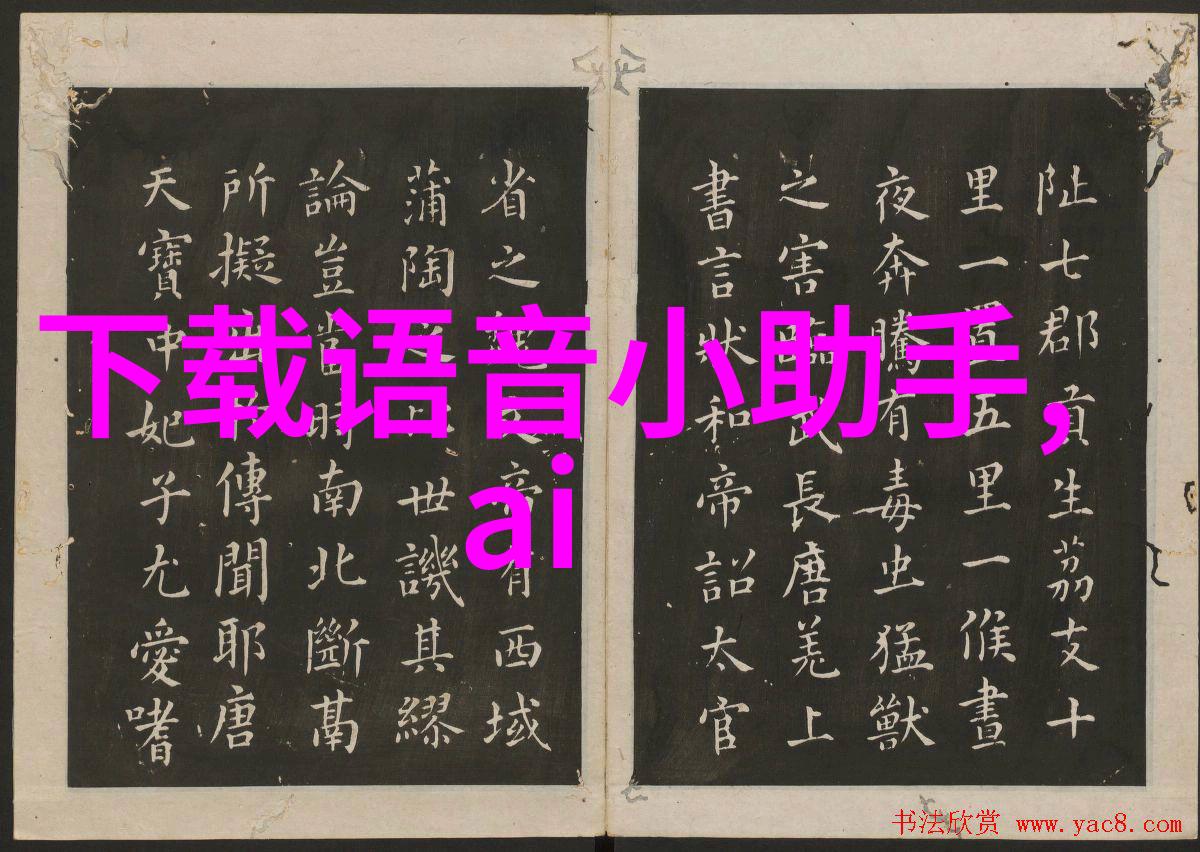 阯七郡貢生茘支十
里一置五里一候晝
夜奔騰有毒虫猛獸
之害臨武長唐羌上
書言狀和帝詔太官
省之魏文帝有西域
蒲陶之比世譏其繆
論豈當時南北斷鬲
所擬出於傳聞耶唐
天寶中妃子尤愛嗜
下载语音小助手,
ai
书法欣赏 www.yac8.com